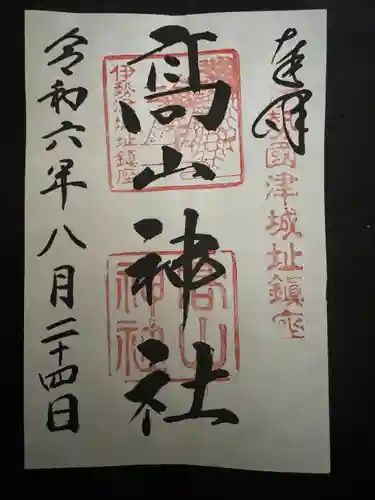 奉拝
勢國津城址鎮座
高山神社
伊勢津城址鎮座
高山
神社
令和六年八月二十四日